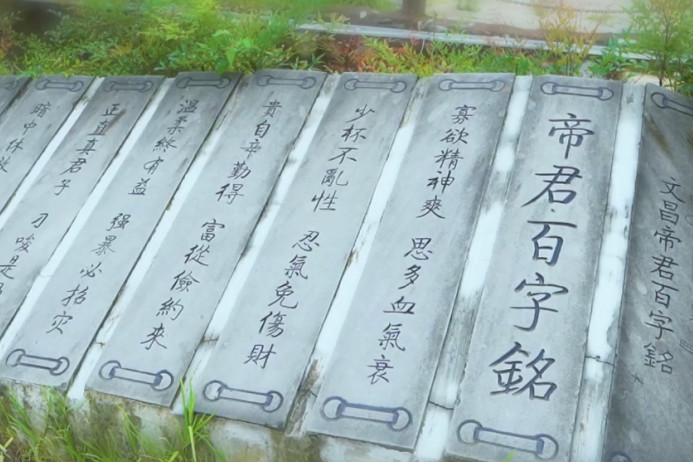 文昌帝君百字銘
帝君百字銘
寡欲精神爽 思多血氣衰
少杯不亂性 忍氣免傷財
貴自辛勤得 富從儉約來
溫柔終有益 强暴必招灾
正直真君子 刁唆是
暗中休